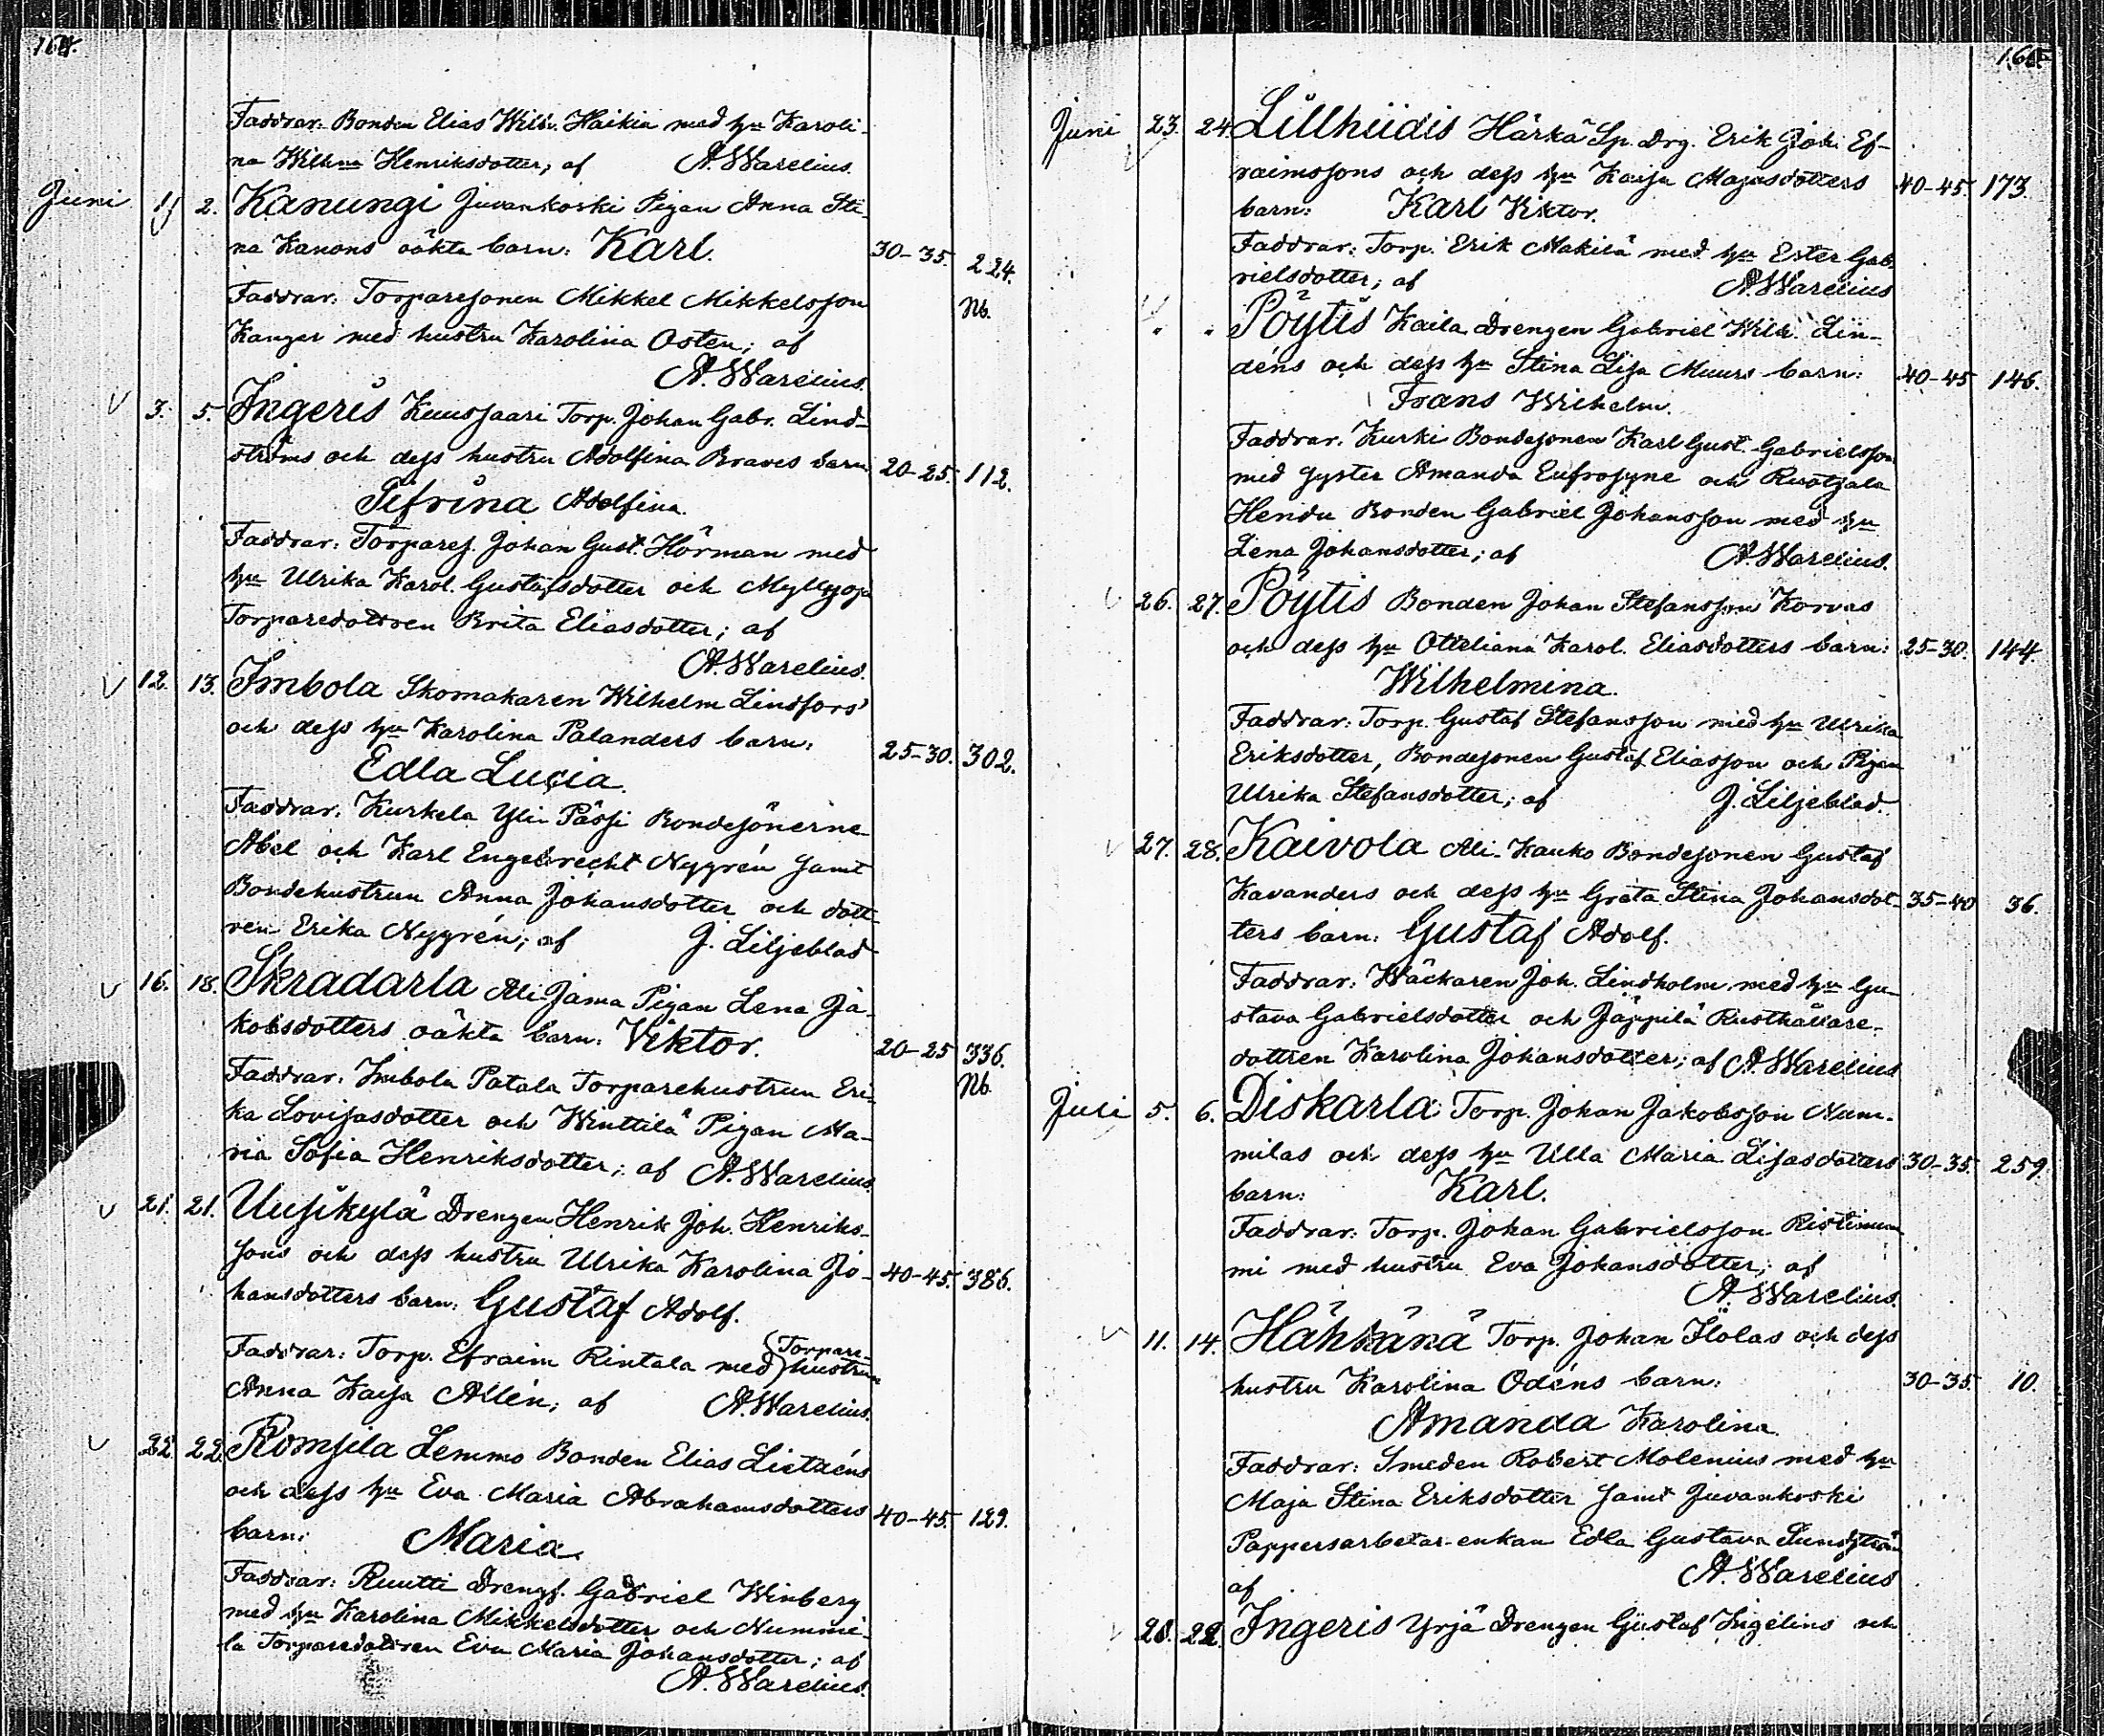 164.
Faddrar: Bonden Elias Wilh. Haikia med hu Karoli-
na Wilhna Henriksdotter; af A. Warelius.
Juni 1. 2. Kanungi Juvankoski Pigan Anna Sti-
na Kanons oäkta barn: Karl. 30-35. 224.
Faddrar: Torparesonen Mikkel Mikkelsson Nb.
Kangar med hustru Karoliina Osten; af
A. Warelius.
3. 5. Ingeris Kuussaari Torp. Johan Gabr. Lind-
ströms och dess hustru Adolfina Braves barn 20-25. 112.
Sifrina Adolfina.
Faddrar: Torpares. Johan Gust. Hörman med
hu Ulrika Karol. Gustafsdotter och Myllyoja
Torparedottren Brita Eliasdotter; af
A. Warelius.
12. 13. Imbola Skomakaren Wilhelm Lindfors'
och dess hu Karolina Palanders barn: 25-30. 302.
Edla Lucia.
Faddrar: Kurkela Yli-Pässi Bondesönerne
Abel och Karl Engelbrecht Nygrén samt
Bondehustrun Anna Johansdotter och dott-
ren Erika Nygrén; af J. Liljeblad
16. 18. Skradarla Ali-Jama Pigan Lena Ja-
kobsdotters oäkta barn: Viktor. 20-25 336.
Faddrar: Imbola Patala Torparehustrun Eri- Nb.
ka Lovisasdotter och Winttilä Pigan Ma-
ria Sofia Henriksdotter; af A. Warelius.
21. 21. Uusikylä Drengen Henrik Joh. Henriks-
sons och dess hustru Ulrika Karolina Jo- 40-45. 386.
hansdotters barn: Gustaf Adolf.
Faddrar: Torp. Efraim Rintala med Torpare-
hustrun
Anna Kaisa Allén; af A. Warelius.
22. 22. Romsila Lemmo Bonden Elias Lietzéns
och dess hu Eva Maria Abrahamsdotters 40-45. 129.
barn: Maria.
Faddrar: Ruutti Drengs. Gabriel Winberg
med hu Karolina Mikkelsdotter och Nummi-
la Torparedottren Eva Maria Johansdotter; af
A. Warelius.
165.
Juni 23. 24. Lillhiidis Härkä Sp. Drg. Erik Joh. Ef-
raimssons och dess hu Kaisa Majasdotters 40-45. 173.
barn: Karl Viktor.
Faddrar: Torp. Erik Makilä med hu Ester Gab-
rielsdotter; af A. Warelius
" " Pöytis Kaila Drengen Gabriel Wilh. Lin-
déns och dess hu Stina Lisa Muurs barn: 40-45 146.
Frans Wilhelm.
Faddrar: Kurki Bondesonen Karl Gust. Gabrielsson
med syster Amanda Eufrosyne och Ruotsala
Heridu Bonden Gabriel Johansson med hu
Lena Johansdotter; af A. Warelius.
26. 27. Pöytis Bonden Johan Stefansson Korvas
och dess hu Otteliana Karol. Eliasdotters barn: 25-30. 144.
Wilhelmina.
Faddrar: Torp. Gustaf Stefansson med hu Ulrika
Eriksdotter, Bondesonen Gustaf Eliasson och Pigan
Ulrika Stefansdotter; af J. Liljeblad.
27. 28. Kaivola Ali-Kauko Bondesonen Gustaf
Kavanders och dess hu Greta Stina Johansdot- 35-40 36.
ters barn: Gustaf Adolf.
Faddrar: Wäckaren Joh. Lindholm med hu Gu-
stava Gabrielsdotter och Jäppilä Rusthållare-
dottren Karolina Johansdotter; af A. Warelius
Juli 5. 6. Diskarla Torp. Johan Jakobsson Num-
milas och dess hu Ulla Maria Lisasdotters 30-35. 259.
barn: Karl.
Faddrar: Torp. Johan Gabrielsson Ristinum-
mi med hustru Eva Johansdotter; af
A. Warelius.
11. 14. Hähkänä Torp. Johan Flolas och dess
hustru Karolina Odéns barn: 30-35. 10.
Amanda Karolina.
Faddrar: Smeden Robert Molenius med hu
Maja Stina Eriksdotter samt Juvankoski
Pappersarbetar-enkan Edla Gustava Sundström
af A. Warelius
21. 22. Ingeris Yrjä Drengen Gustaf Ingelins och